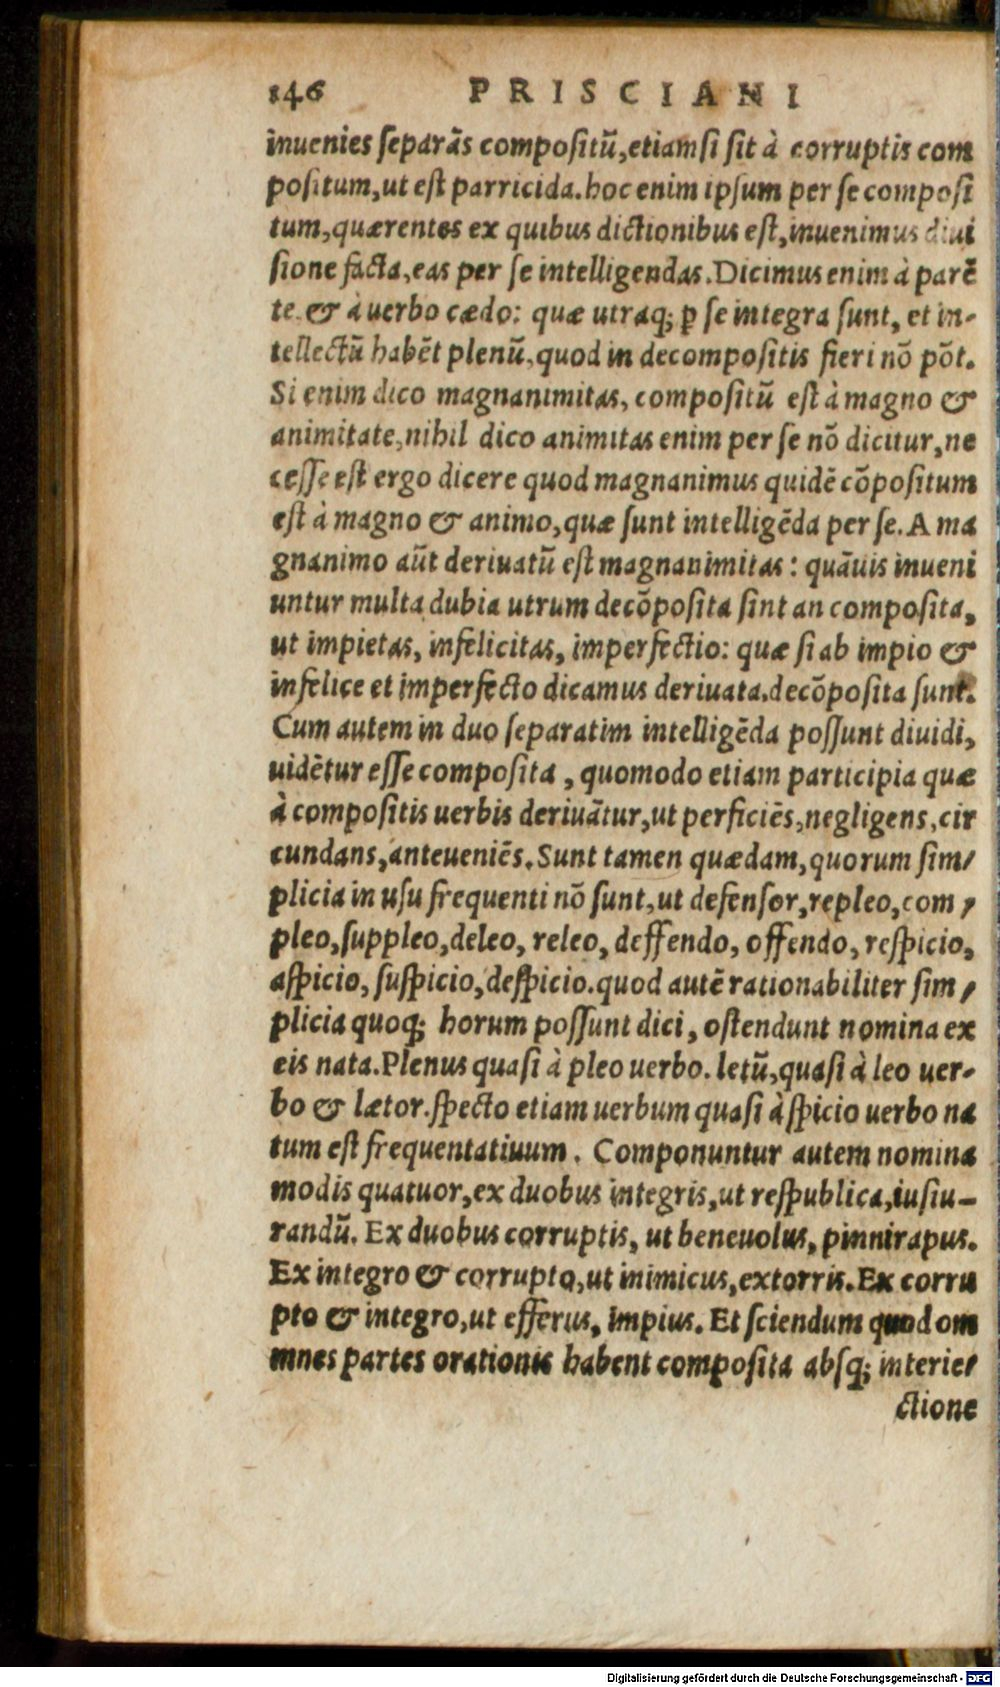 146 PRISCIANI
inuenies ſeparãs compoſitũ,etiamſi ſit à corruptis com
poſitum,ut eſt parricida.hoc enim ipſum per ſe compoſi
tum,quærentes ex quibus dictionibus eſt,inuenimus diui
ſione facta,eas per ſe intelligendas.Dicimus enim à parẽ
te.& à uerbo cædo: quæ utraq; ꝑ ſe integra ſunt, et in-
tellectũ habẽt plenũ,quod in decompoſitis fieri nõ põt.
Si enim dico magnanimitas, compoſitũ eſt à magno &
animitate,nihil dico animitas enim per ſe nõ dicitur,ne
ceſſe eſt ergo dicere quod magnanimus quidẽ cõpoſitum
eſt à magno & animo,quæ ſunt intelligẽda per ſe. A ma
gnanimo aũt deriuatũ eſt magnanimitas : quãuis inueni
untur multa dubia utrum decõpoſita ſint an compoſita,
ut impietas, infelicitas, imperfectio: quæ ſi ab impio &
infelice et imperfecto dicamus deriuata.decõpoſita ſunt.
Cum autem in duo ſeparatim intelligẽda poſſunt diuidi,
uidẽtur eſſe compoſita , quomodo etiam participia quæ
à compoſitis uerbis deriuãtur,ut perficiẽs,negligens,cir
cundans,anteueniẽs.Sunt tamen quædam,quorum ſim/
plicia in uſu frequenti nõ ſunt,ut defenſor,repleo,com /
pleo,ſuppleo,deleo, releo, deffendo, offendo, reſpicio,
aſpicio, ſuſpicio,deſpicio.quod autẽ rationabiliter ſim /
plicia quoq; horum poſſunt dici, oſtendunt nomina ex
eis nata.Plenus quaſi à pleo uerbo. letũ,quaſi à leo uer-
bo & lætor.ſpecto etiam uerbum quaſi à ſpicio uerbo na
tum eſt frequentatiuum . Componuntur autem nomina
modis quatuor,ex duobus integris,ut reſpublica,iuſiu-
randũ. Ex duobus corruptis, ut beneuolus, pinnirapus.
Ex integro & corrupto,ut inimicus,extorris.Ex corru
pto & integro,ut efferus, impius. Et ſciendum quod om
mnes partes orationis habent compoſita abſq; interie/
ctione
Digitalisierung gefördert durch die Deutsche Forschungsgemeinschaft - DFG